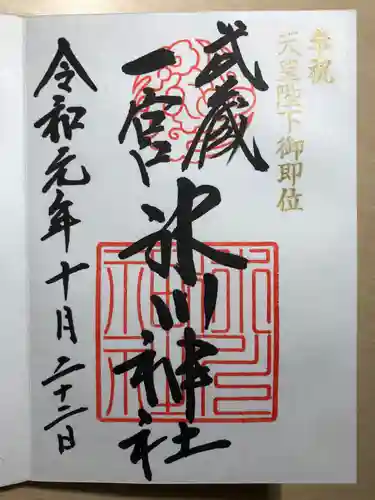 奉祝
天皇陛下御即位
武蔵
一宮
氷川神社
令和元年十月二十二日
氷川神社